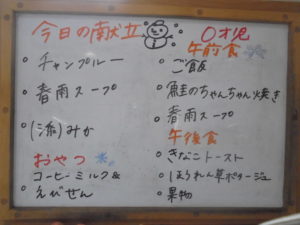 今日の献立
・チャンプルー
・春雨スープ
・(流)みかん
おやつ
コーヒーミルク&
・えびせん
0才児
午前食
・ご飯
・鮭のちゃんちゃん焼き
・春雨スープ
午後食
・きなこトースト
・ほうれん草ポタージュ
・果物